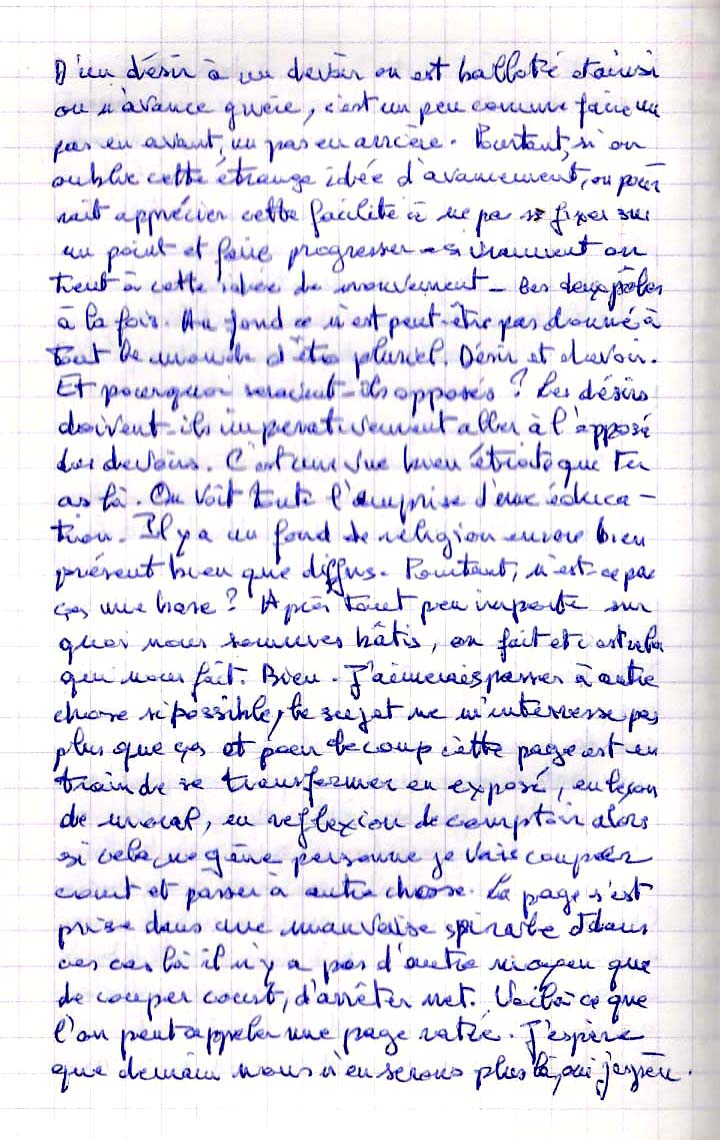 D'un désir à un devoir on est balloté et ainsi
on n'avance guère, c'est un peu comme faire un
pas en avant, un pas en arrière. Pourtant, si on
oublie cette étrange idée d'avancement, on pour
rait apprécier cette facilité à ne pas se fixer sur
un point et faire progresser si vraiment on
tient à cette idée de mouvement - Les deux pôles
à la fois. Au fond ce n'est peut-être pas donné à
tout le monde d'être pluriel. Désir et devoir.
Et pourquoi seraient-ils opposés ? Les désirs
doivent-ils impérativement aller à l'opposé
des devoirs. C'est une vue bien étroite que tu
as là. On voit toute l'emprise d'une éduca-
tion. Il y a un fond de religion encore bien
présent bien que diffus. Pourtant, n'est-ce pas
ças une base ? Après tout peu importe sur
quoi nous sommes bâtis, on fait et c'est cela
qui nous fait. Bien. J'aimerais passer à autre
chose si possible, le sujet ne m'interresse pas
plus que ças et pour le coup cette page est en
train de se transformer en exposé, en leçon
de moral, en reflexion de comptoir alors
si cela ne gêne personne je vais couper
court et passer à autre chose. La page s'est
prise dans une mauvaise spirale et dans
ces cas là il n'y a pas d'autre moyen que
de couper court, d'arrêter net. Voilà ce que
l'on peut appeler une page ratée. J'espère
que demain nous n'en serons plus là, oui j'espère.